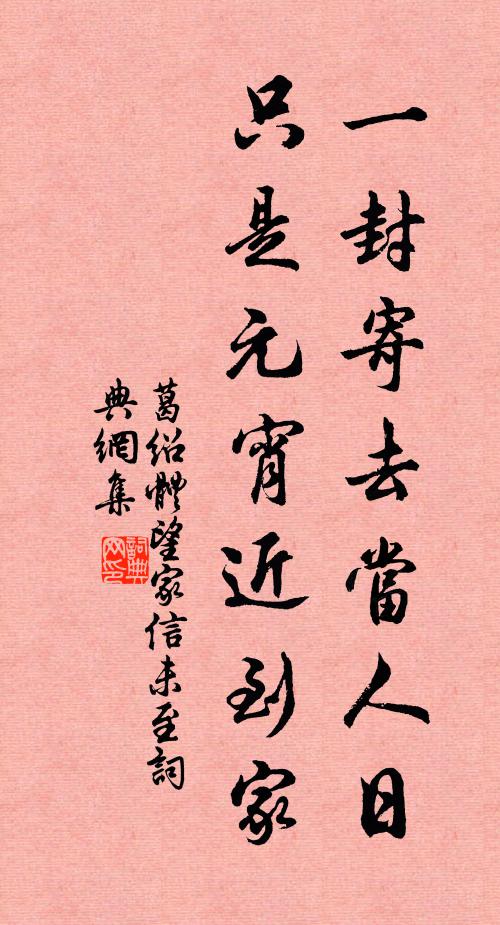 一封寄去當人日
只是元宵近到家
葛紹體望家信未至詞
典網集
詞典
網印